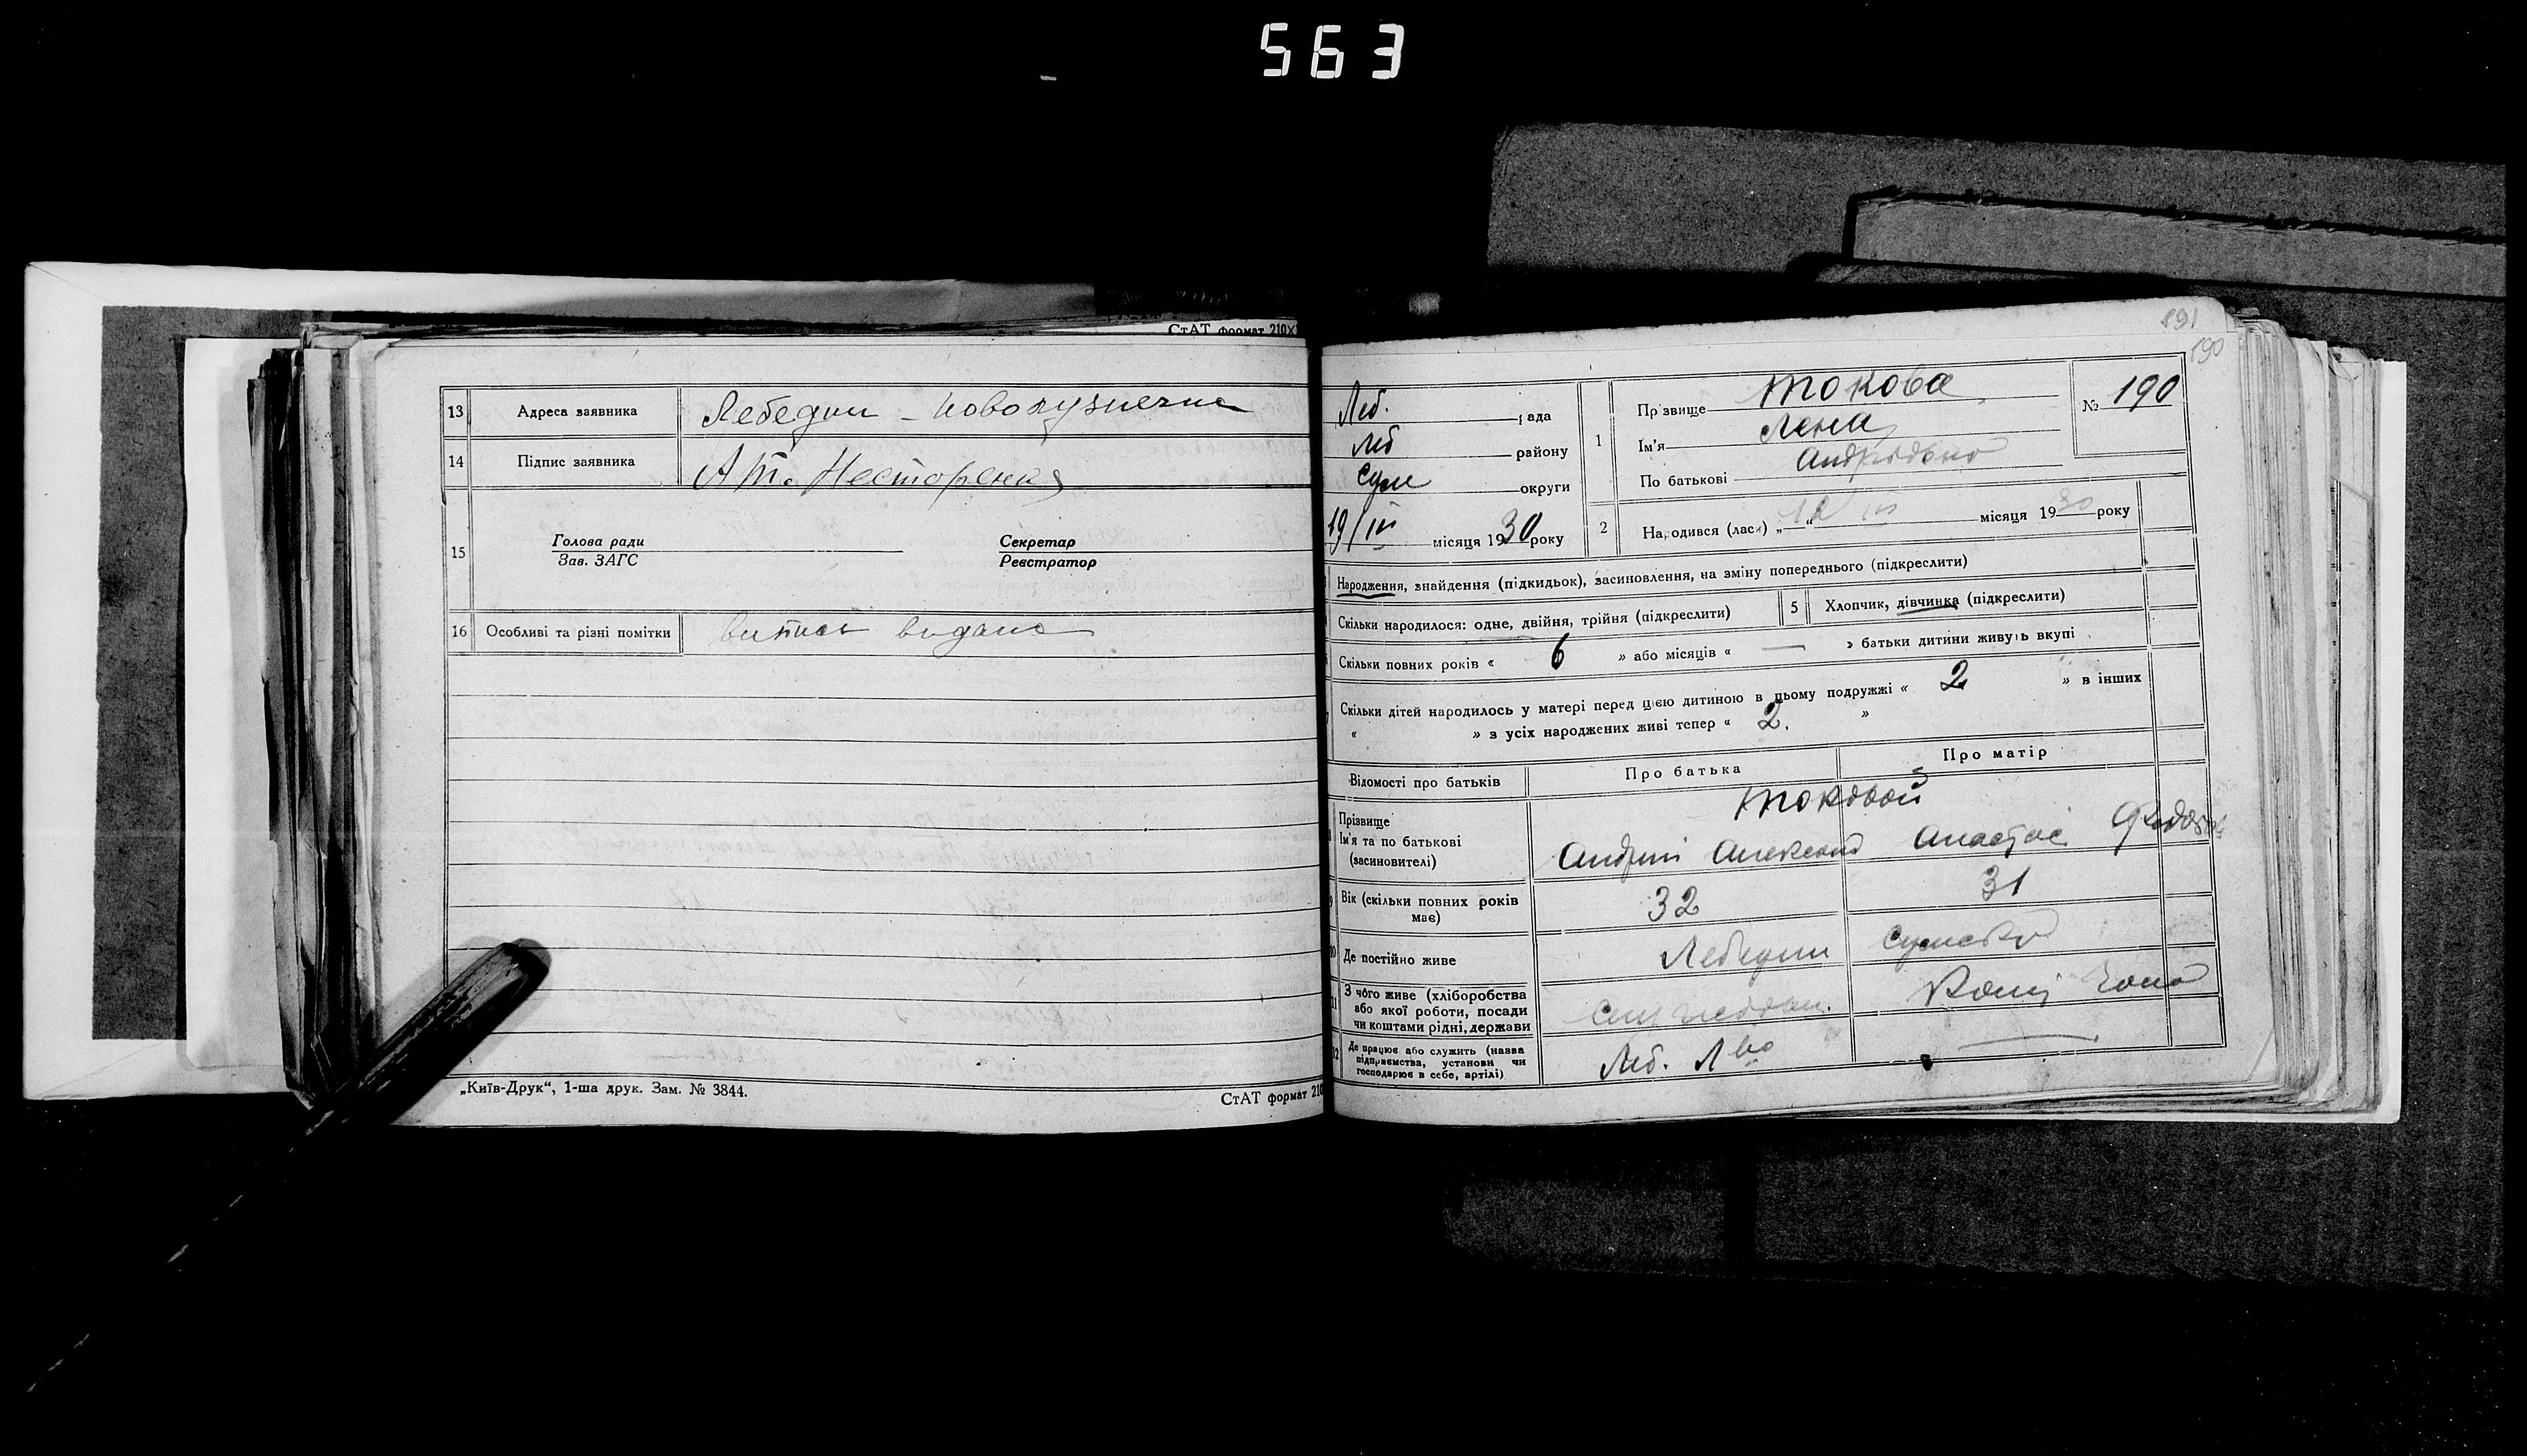 563
СтАТ формат 210×
13 Адреса заявника Лебедин - Новокузнечна
14 Підпис заявника А Т. Несторенко
15 Голова ради Секретар
Зав. ЗАГС Реєстратор
16 Особливі та різні помітки витяг видано
„Київ-Друк“, 1-ша друк. Зам. № 3844.
СтАТ формат 210
191
190
Леб. рада
Леб району
Сум округи
19/III місяця 1930 року
1 Прізвище Токова
Ім'я Лена
По батькові Андріївна
№ 190
2 Народився (лася) „12“ III місяця 1930 року
Народження, знайдення (підкидьок), засиновлення, на зміну попереднього (підкреслити)
Скільки народилося: одне, двійня, трійня (підкреслити) 5 Хлопчик, дівчинка (підкреслити)
Скільки повних років « 6 » або місяців « — » батьки дитини живуть вкупі
Скільки дітей народилось у матері перед цією дитиною в цьому подружжі « 2 » в інших
« » з усіх народжених живі тепер « 2. »
Відомості про батьків Про батька Про матір
Прізвище Токовой
Ім'я та по батькові Андрій Алексеив Анастас Федос
(засиновителі)
9 Вік (скільки повних років має) 32 31
10 Де постійно живе Лебедин Сумськ
11 З чого живе (хліборобства
або якої роботи, посади
чи коштами рідні, держави
12 Де працює або служить (назва
підприємства, установи чи
господарює в себе, артілі)
Леб.